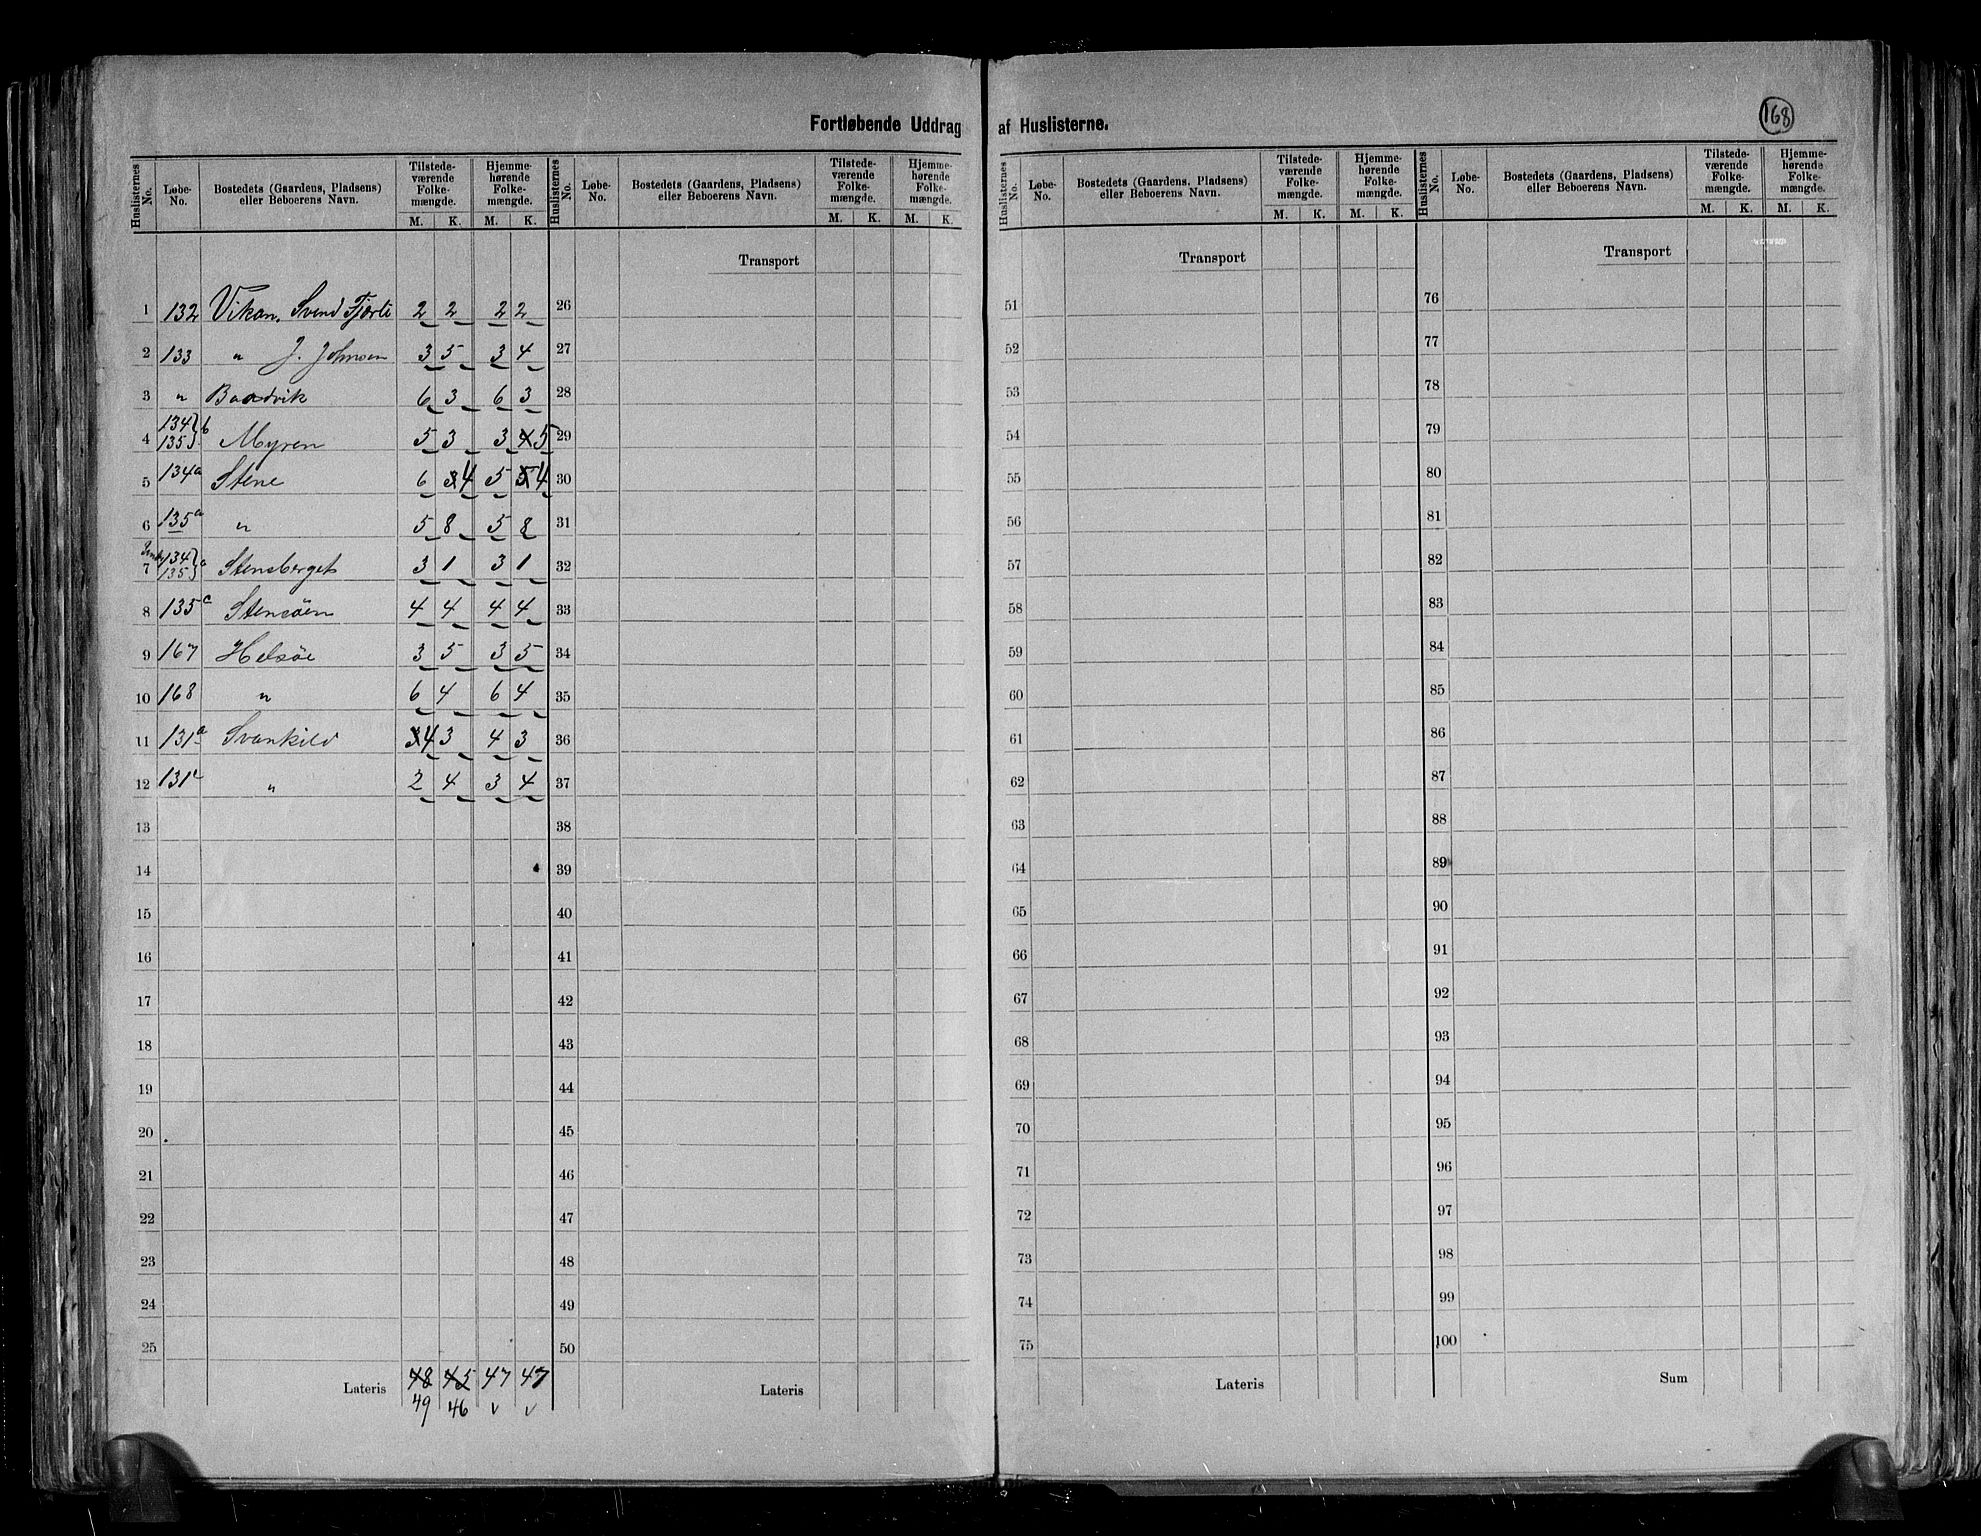 Fortløbende Uddrag af Huslisterne.
168
Huslisternes No. | Løbe-No. | Bostedets (Gaardens, Pladsens) eller Beboerens Navn. | Tilstedeværende Folkemængde. M. K. | Hjemmehørende Folkemængde. M. K.
1 132 Vikan, Svend Fjørli 2 2 2 2
2 133 " J. Johnsen 3 5 3 4
3 " Baadvik 6 3 6 3
4 134 135 } b Myren 5 3 3 4 5
5 134a Stene 6 3 4 5 5 4
6 135a " 5 8 5 8
7 134 135 } a Stensberget 3 1 3 1
8 135c Stensöen 4 4 4 4
9 167 Helsöe 3 5 3 5
10 168 " 6 4 6 4
11 131a Svankild 3 4 3 4 3
12 131c " 2 4 3 4
13
14
15
16
17
18
19
20
21
22
23
24
25
Lateris 48 45 47 47
49 46 v v
Huslisternes No. | Løbe-No. | Bostedets (Gaardens, Pladsens) eller Beboerens Navn. | Tilstedeværende Folkemængde. M. K. | Hjemmehørende Folkemængde. M. K.
Transport
26
27
28
29
30
31
32
33
34
35
36
37
38
39
40
41
42
43
44
45
46
47
48
49
50
Lateris
Huslisternes No. | Løbe-No. | Bostedets (Gaardens, Pladsens) eller Beboerens Navn. | Tilstedeværende Folkemængde. M. K. | Hjemmehørende Folkemængde. M. K.
Transport
51
52
53
54
55
56
57
58
59
60
61
62
63
64
65
66
67
68
69
70
71
72
73
74
75
Lateris
Huslisternes No. | Løbe-No. | Bostedets (Gaardens, Pladsens) eller Beboerens Navn. | Tilstedeværende Folkemængde. M. K. | Hjemmehørende Folkemængde. M. K.
Transport
76
77
78
79
80
81
82
83
84
85
86
87
88
89
90
91
92
93
94
95
96
97
98
99
100
Sum